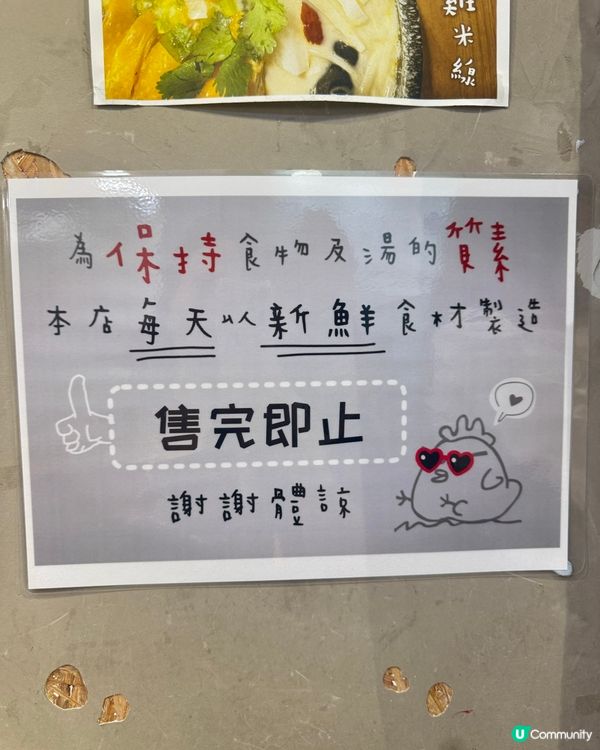 雞米線
為保持食物及湯的質素
本店每天以新鮮食材製造
售完即止
謝謝體諒
U Community